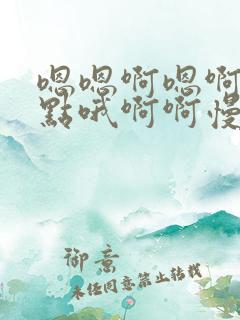 嗯嗯啊嗯啊
點哦啊啊慢
御意
未经同意禁止转载